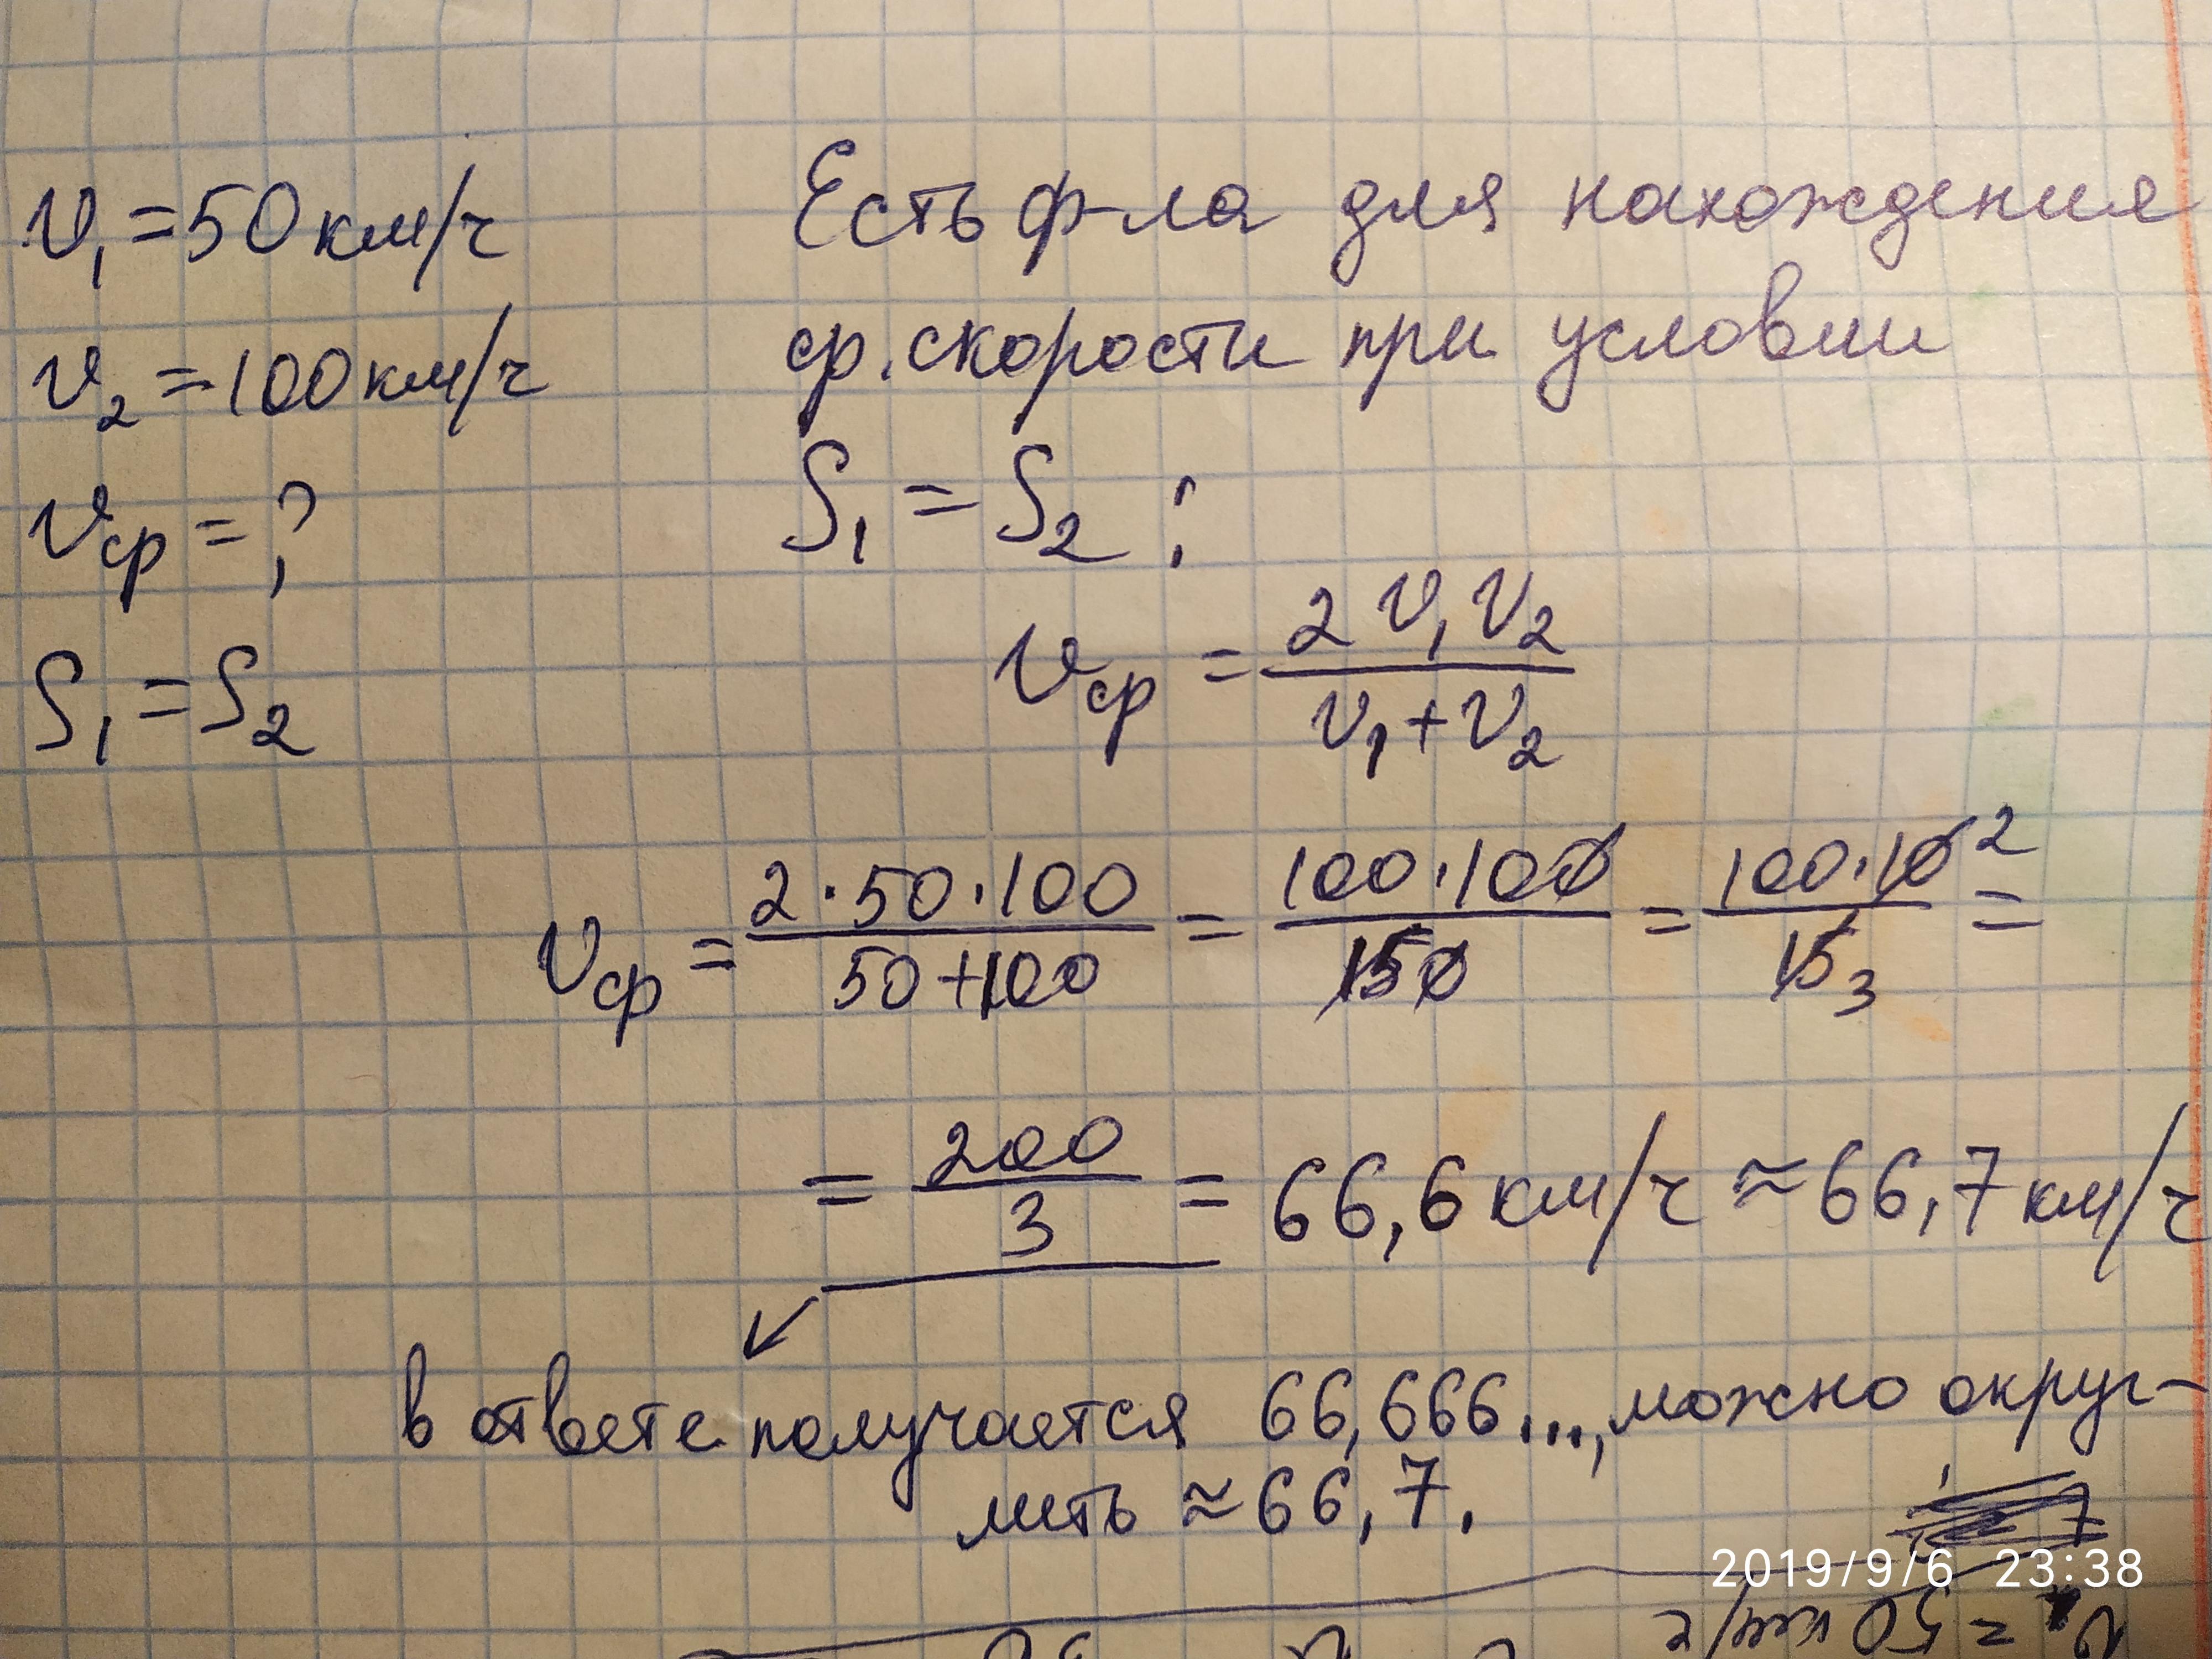 v₁ = 50 км/ч
v₂ = 100 км/ч
vср = ?
S₁ = S₂
Есть ф-ла для нахождения
ср. скорости при условии
S₁ = S₂ :
vср = 2 v₁ v₂ / v₁ + v₂
vср = 2·50·100 / 50+100 = 100·100 / 150 = 100·10 2 / 15 3 =
= 200 / 3 = 66,6 км/ч ≈ 66,7 км/ч
в ответе получается 66,666..., можно округ-
лить ≈ 66,7.
2019/9/6 23:38
= 50 км/ч